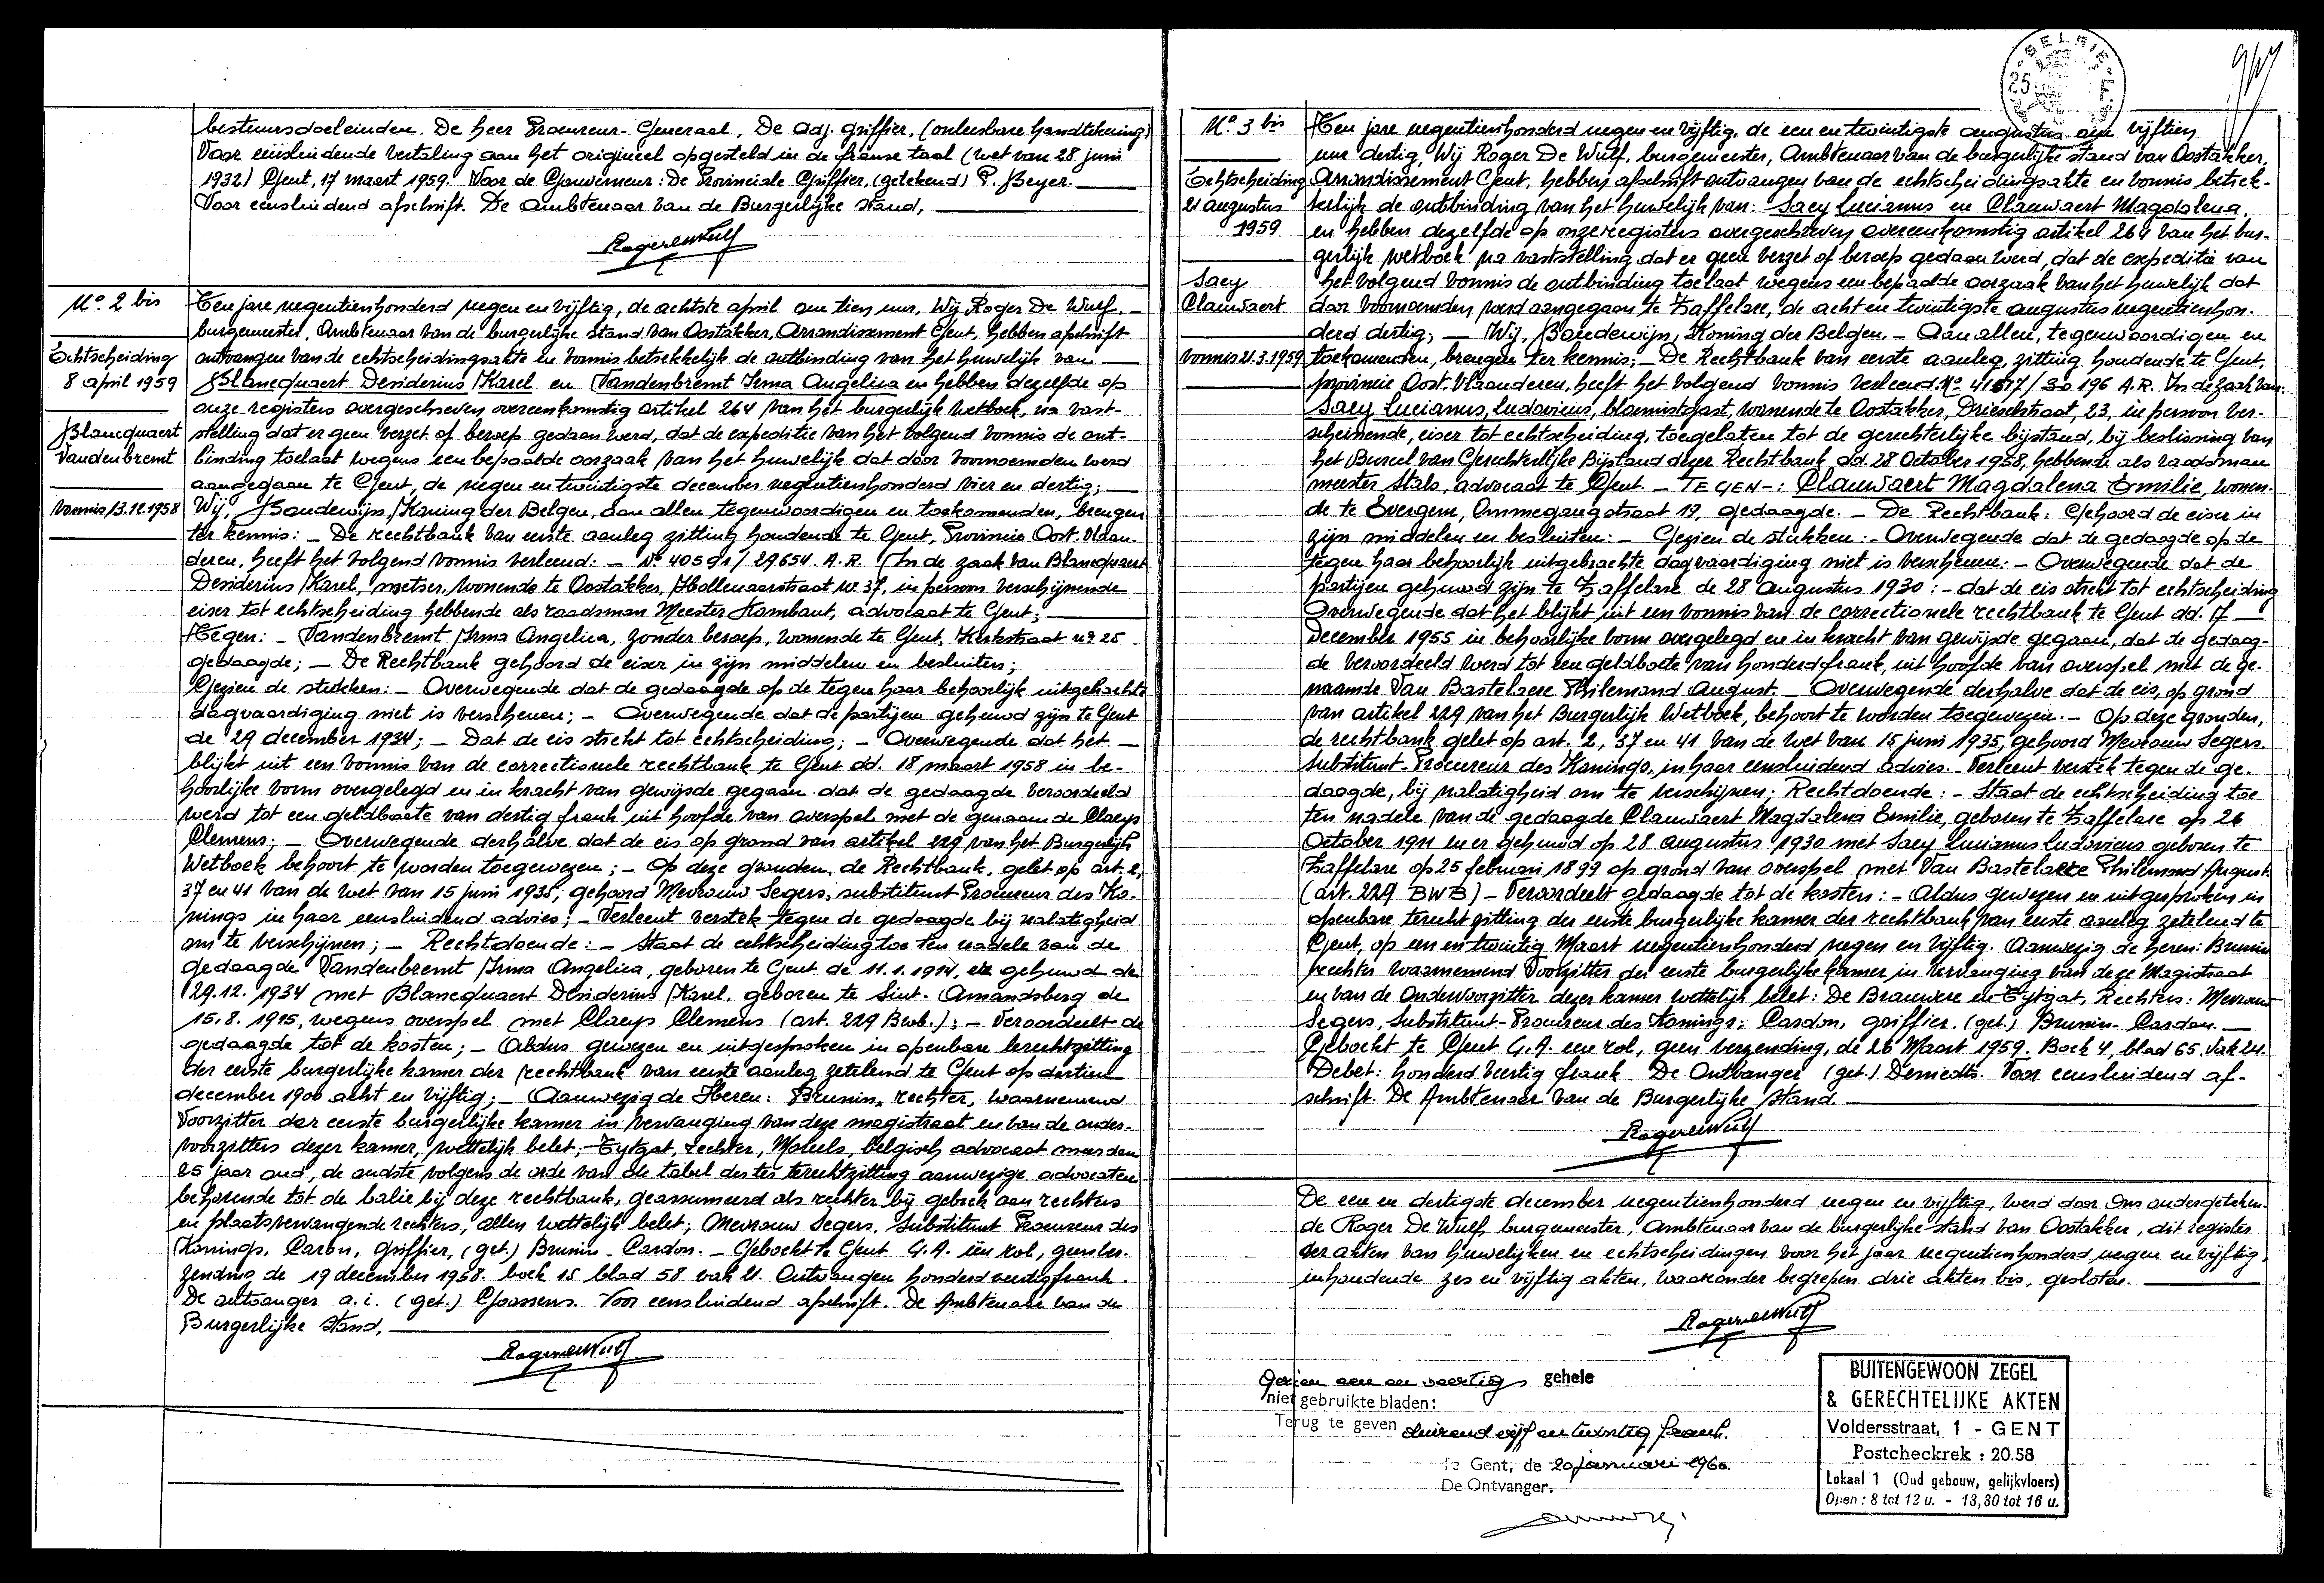 bestuursdoeleinden. De heer Procureur-Generaal, De adj. griffier, (onleesbare handtekening)
Voor eensluidende vertaling aan het origineel opgesteld in de franse taal (wet van 28 juni
1932) Gent, 17 maart 1959. Voor de Gouverneur: De Provinciale Griffier, (getekend) P. Beyer.
Voor eensluidend afschrift. De ambtenaar van de Burgerlijke stand,
Roger De Wulf
N.º 2 bis
Echtscheiding
8 april 1959
Blancquaert
Vandenbremt
Vonnis 13.12.1958
Ten jare negentienhonderd negen en vijftig, de achtste april om tien uur, Wij Roger De Wulf,
burgemeester, Ambtenaar van de burgerlijke stand van Oostakker, Arrondissement Gent, hebben afschrift
ontvangen van de echtscheidingsakte en vonnis betrekkelijk de ontbinding van het huwelijk van
Blancquaert Desiderius Karel en Vandenbremt Irma Angelica en hebben dezelfde op
onze registers overgeschreven overeenkomstig artikel 264 van het burgerlijk wetboek, na vast-
stelling dat er geen verzet of beroep gedaan werd, dat de expeditie van het volgend vonnis de ont-
binding toelaat wegens een bepaalde oorzaak van het huwelijk dat door voornoemden werd
aangegaan te Gent, de negen en twintigste december negentienhonderd vier en dertig;
Wij, Boudewijn, Koning der Belgen, aan allen tegenwoordigen en toekomenden, brengen
ter kennis: - De rechtbank van eerste aanleg zitting houdende te Gent, Provincie Oost-Vlaan-
deren, heeft het volgend vonnis verleend: - Nº 40591/29654. A.R. In de zaak van Blancquaert
Desiderius Karel, metser, wonende te Oostakker, Hollenaarstraat nr. 37, in persoon verschijnende
eiser tot echtscheiding hebbende als raadsman Meester Hambaut, advocaat te Gent;
Tegen: - Vandenbremt Irma Angelica, zonder beroep, wonende te Gent, Kerkstraat nº 25
gedaagde; - De Rechtbank gehoord de eiser in zijn middelen en besluiten;
Gezien de stukken: - Overwegende dat de gedaagde op de tegen haar behoorlijk uitgebrachte
dagvaardiging niet is verschenen; - Overwegende dat de partijen gehuwd zijn te Gent
de 29 december 1934; - Dat de eis strekt tot echtscheiding; - Overwegende dat het
blijkt uit een vonnis van de correctionele rechtbank te Gent dd. 18 maart 1958 in be-
hoorlijke vorm overgelegd en in kracht van gewijsde gegaan dat de gedaagde veroordeeld
werd tot een geldboete van dertig frank uit hoofde van overspel met de genaamde Claeys
Clemens; - Overwegende derhalve dat de eis op grond van artikel 229 van het Burgerlijk
Wetboek behoort te worden toegewezen; - Op deze gronden, de Rechtbank, gelet op art. 2,
37 en 41 van de wet van 15 juni 1935; gehoord Mevrouw Segers, substituut Procureur des Ko-
nings in haar eensluidend advies; - Verleent verstek tegen de gedaagde bij nalatigheid
om te verschijnen; - Rechtdoende: - Staat de echtscheiding toe ten nadele van de
gedaagde Vandenbremt Irma Angelica, geboren te Gent de 11.1.1914, er gehuwd de
29.12.1934 met Blancquaert Desiderius Karel, geboren te Sint-Amandsberg de
15.8.1915, wegens overspel met Claeys Clemens (art. 229 Bwb.); - Veroordeelt de
gedaagde tot de kosten; - Aldus gewezen en uitgesproken in openbare terechtzitting
der eerste burgerlijke kamer der rechtbank van eerste aanleg zetelend te Gent op dertien
december 1900 acht en vijftig; - Aanwezig de Heren: Brunin, rechter, waarnemend
Voorzitter der eerste burgerlijke kamer in vervanging van deze magistraat en van de onder-
voorzitters dezer kamer, wettelijk belet; Eytgat, rechter, belgisch advocaat meer dan
25 jaar oud, de oudste volgens de orde van de tabel der ter terechtzitting aanwezige advocaten
behorende tot de balie bij deze rechtbank, geassumeerd als rechter bij gebrek aan rechters
en plaatsvervangende rechters, allen wettelijk belet; Mevrouw Segers, Substituut Procureur des
Konings, Cardon, Griffier, (get.) Brunin - Cardon. - Geboekt te Gent G.A. één rol, geen ver-
zending de 19 december 1958. boek 15 blad 58 vak 21. Ontvangen honderd veertig frank.
De ontvanger a.i. (get.) Goossens. Voor eensluidend afschrift. De Ambtenaar van de
Burgerlijke stand,
Roger De Wulf
BELGIE
25 F
N.º 3 bis
Echtscheiding
21 augustus
1959
Saey
Clauwaert
Vonnis 21.3.1959
Ten jare negentienhonderd negen en vijftig, de een en twintigste augustus om vijftien
uur dertig, Wij Roger De Wulf, burgemeester, Ambtenaar van de burgerlijke stand van Oostakker,
Arrondissement Gent, hebben afschrift ontvangen van de echtscheidingsakte en vonnis betrek-
kelijk de ontbinding van het huwelijk van: Saey Lucianus en Clauwaert Magdalena
en hebben dezelfde op onze registers overgeschreven overeenkomstig artikel 264 van het bur-
gerlijk wetboek na vaststelling dat er geen verzet of beroep gedaan werd, dat de expeditie van
het volgend vonnis de ontbinding toelaat wegens een bepaalde oorzaak van het huwelijk dat
door voornoemden werd aangegaan te Zaffelare, de acht en twintigste augustus negentienhon-
derd dertig; - Wij, Boudewijn, Koning der Belgen, - Aan allen, tegenwoordigen en
toekomenden, brengen ter kennis; - De Rechtbank van eerste aanleg, zitting houdende te Gent,
provincie Oost-Vlaanderen, heeft het volgend vonnis verleend. Nº 41617/30196 A.R. In de zaak van:
Saey Lucianus, Ludovicus, bloemistgast, wonende te Oostakker, Driesstraat, 23, in persoon ver-
scheinende, eiser tot echtscheiding, toegelaten tot de gerechterlijke bijstand, bij beslissing van
het Bureel van Gerechterlijke Bijstand dezer Rechtbank dd. 28 October 1958, hebbende als raadsman
meester Stals, advocaat te Gent - TEGEN -: Clauwaert Magdalena Emilie, wonen-
de te Evergem, Ommegangstraat 19, gedaagde. - De Rechtbank: Gehoord de eiser in
zijn middelen en besluiten: - Gezien de stukken: - Overwegende dat de gedaagde op de
tegen haar behoorlijk uitgebrachte dagvaardiging niet is verschenen: - Overwegende dat de
partijen gehuwd zijn te Zaffelare de 28 augustus 1930: - dat de eis strekt tot echtscheiding
Overwegende dat het blijkt uit een vonnis van de correctionele rechtbank te Gent dd. 17
December 1955 in behoorlijke vorm overgelegd en in kracht van gewijsde gegaan, dat de gedaag-
de veroordeeld werd tot een geldboete van honderd frank, uit hoofde van overspel met de ge-
naamde Van Bastelaere Philemond August. - Overwegende derhalve dat de eis, op grond
van artikel 229 van het Burgerlijk Wetboek, behoort te worden toegewezen. - Op deze gronden,
de rechtbank gelet op art. 2, 37 en 41 van de wet van 15 juni 1935, gehoord Mevrouw Segers,
substituut-Procureur des Konings, in haar eensluidend advies. - Verleent verstek tegen de ge-
daagde, bij nalatigheid om te verschijnen; Rechtdoende: - Staat de echtscheiding toe
ten nadele van de gedaagde Clauwaert Magdalena Emilie, geboren te Zaffelare op 26
October 1911 en er gehuwd op 28 augustus 1930 met Saey Lucianus Ludovicus geboren te
Zaffelare op 25 februari 1899 op grond van overspel met Van Bastelaere Philemond August
(art. 229 BWB) - Veroordeelt gedaagde tot de kosten: - Aldus gewezen en uitgesproken in
openbare terechtzitting der eerste burgerlijke kamer der rechtbank van eerste aanleg zetelend te
Gent, op een en twintig Maart negentienhonderd negen en vijftig. Aanwezig de heren: Brunin
rechter waarnemend Voorzitter der eerste burgerlijke kamer in vervanging van deze Magistraat
en van de Ondervoorzitter dezer kamer wettelijk belet: De Brauwere en Eytgat, Rechters: Mevrouw
Segers, Substituut-Procureur des Konings; Cardon, griffier. (get.) Brunin - Cardon.
Geboekt te Gent G.A. een rol, geen verzending, de 26 Maart 1959. Boek 4, blad 65. Vak 24.
Debet: honderd veertig frank. De Ontvanger (get.) Demedts. Voor eensluidend af-
schrift. De Ambtenaar van de Burgerlijke Stand.
Roger De Wulf
De een en dertigste december negentienhonderd negen en vijftig, werd door Ons ondergeteken-
de Roger De Wulf, burgemeester, Ambtenaar van de burgerlijke stand van Oostakker, dit register
der akten van huwelijken en echtscheidingen voor het jaar negentienhonderd negen en vijftig,
inhoudende zes en vijftig akten, waaronder begrepen drie akten bis, gesloten.
Roger De Wulf
Gezien een en veertig gehele
niet gebruikte bladen:
Terug te geven duizend vijf en twintig frank.
Te Gent, de 20 januari 1960.
De Ontvanger.
BUITENGEWOON ZEGEL
& GERECHTELIJKE AKTEN
Voldersstraat, 1 - GENT
Postcheckrek : 20.58
Lokaal 1 (Oud gebouw, gelijkvloers)
Open : 8 tot 12 u. - 13,30 tot 16 u.